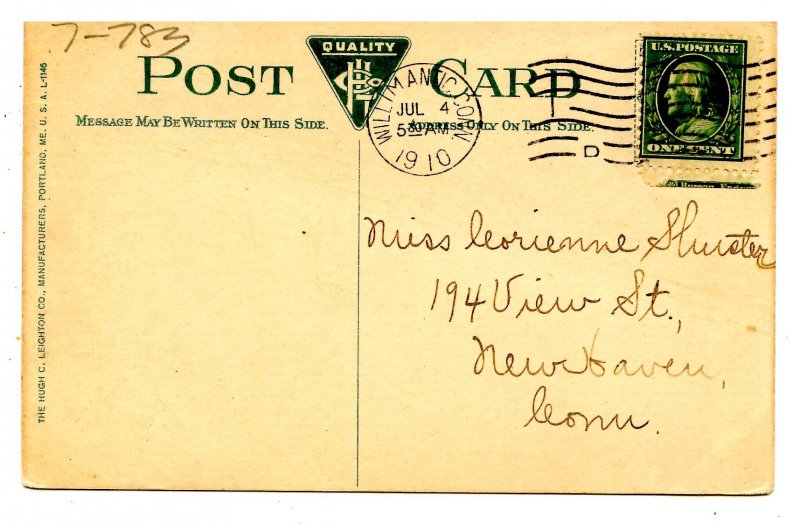 7-783
QUALITY
POST CARD
MESSAGE MAY BE WRITTEN ON THIS SIDE.
ADDRESS ONLY ON THIS SIDE.
WILLIMANTIC, CONN.
JUL 4
5 30 AM
1910
D
U.S. POSTAGE
ONE CENT
Miss Corienne Shuster
194 View St.,
New Haven,
Conn.
THE HUGH C. LEIGHTON CO., MANUFACTURERS, PORTLAND, ME. U. S. A. L-1145